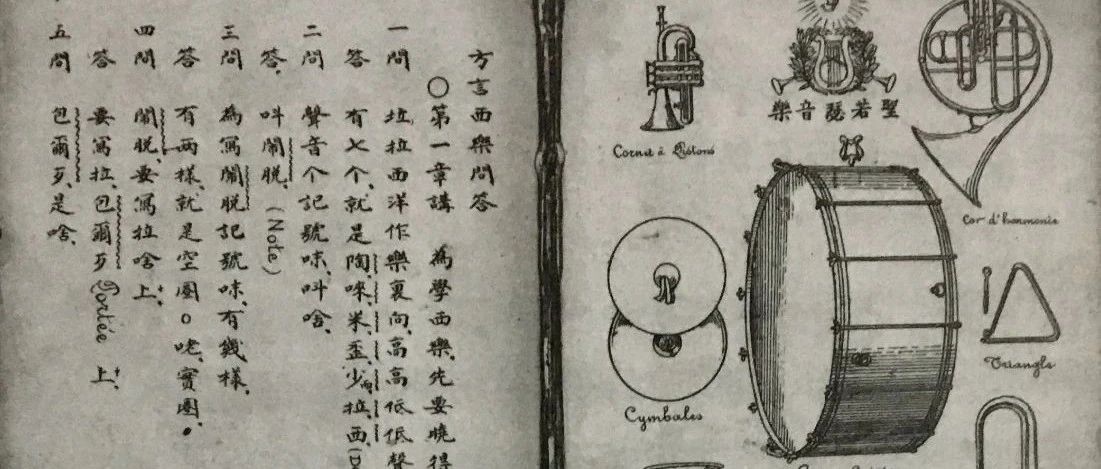 方言西樂問答
○第一章講 為學西樂、先要曉得
一問 拉拉西洋作樂裏向、高高低低聲
答 有七个、就是陶、唻、米、歪、少、拉、西、(D
二問 聲音个記號味、呌啥、
答、呌鬧脱、(Note)
三問 為寫鬧脱記號味、有幾樣、
答 有两樣、就是空圈○咾、實圈、●
四問 鬧脱、要寫拉啥上、
答 要寫拉、包爾歹 Portée 上、
五問 包爾歹、是啥、
聖若瑟音樂
Cornet à Pistons
Cor d'harmonie
Cymbales
Triangle